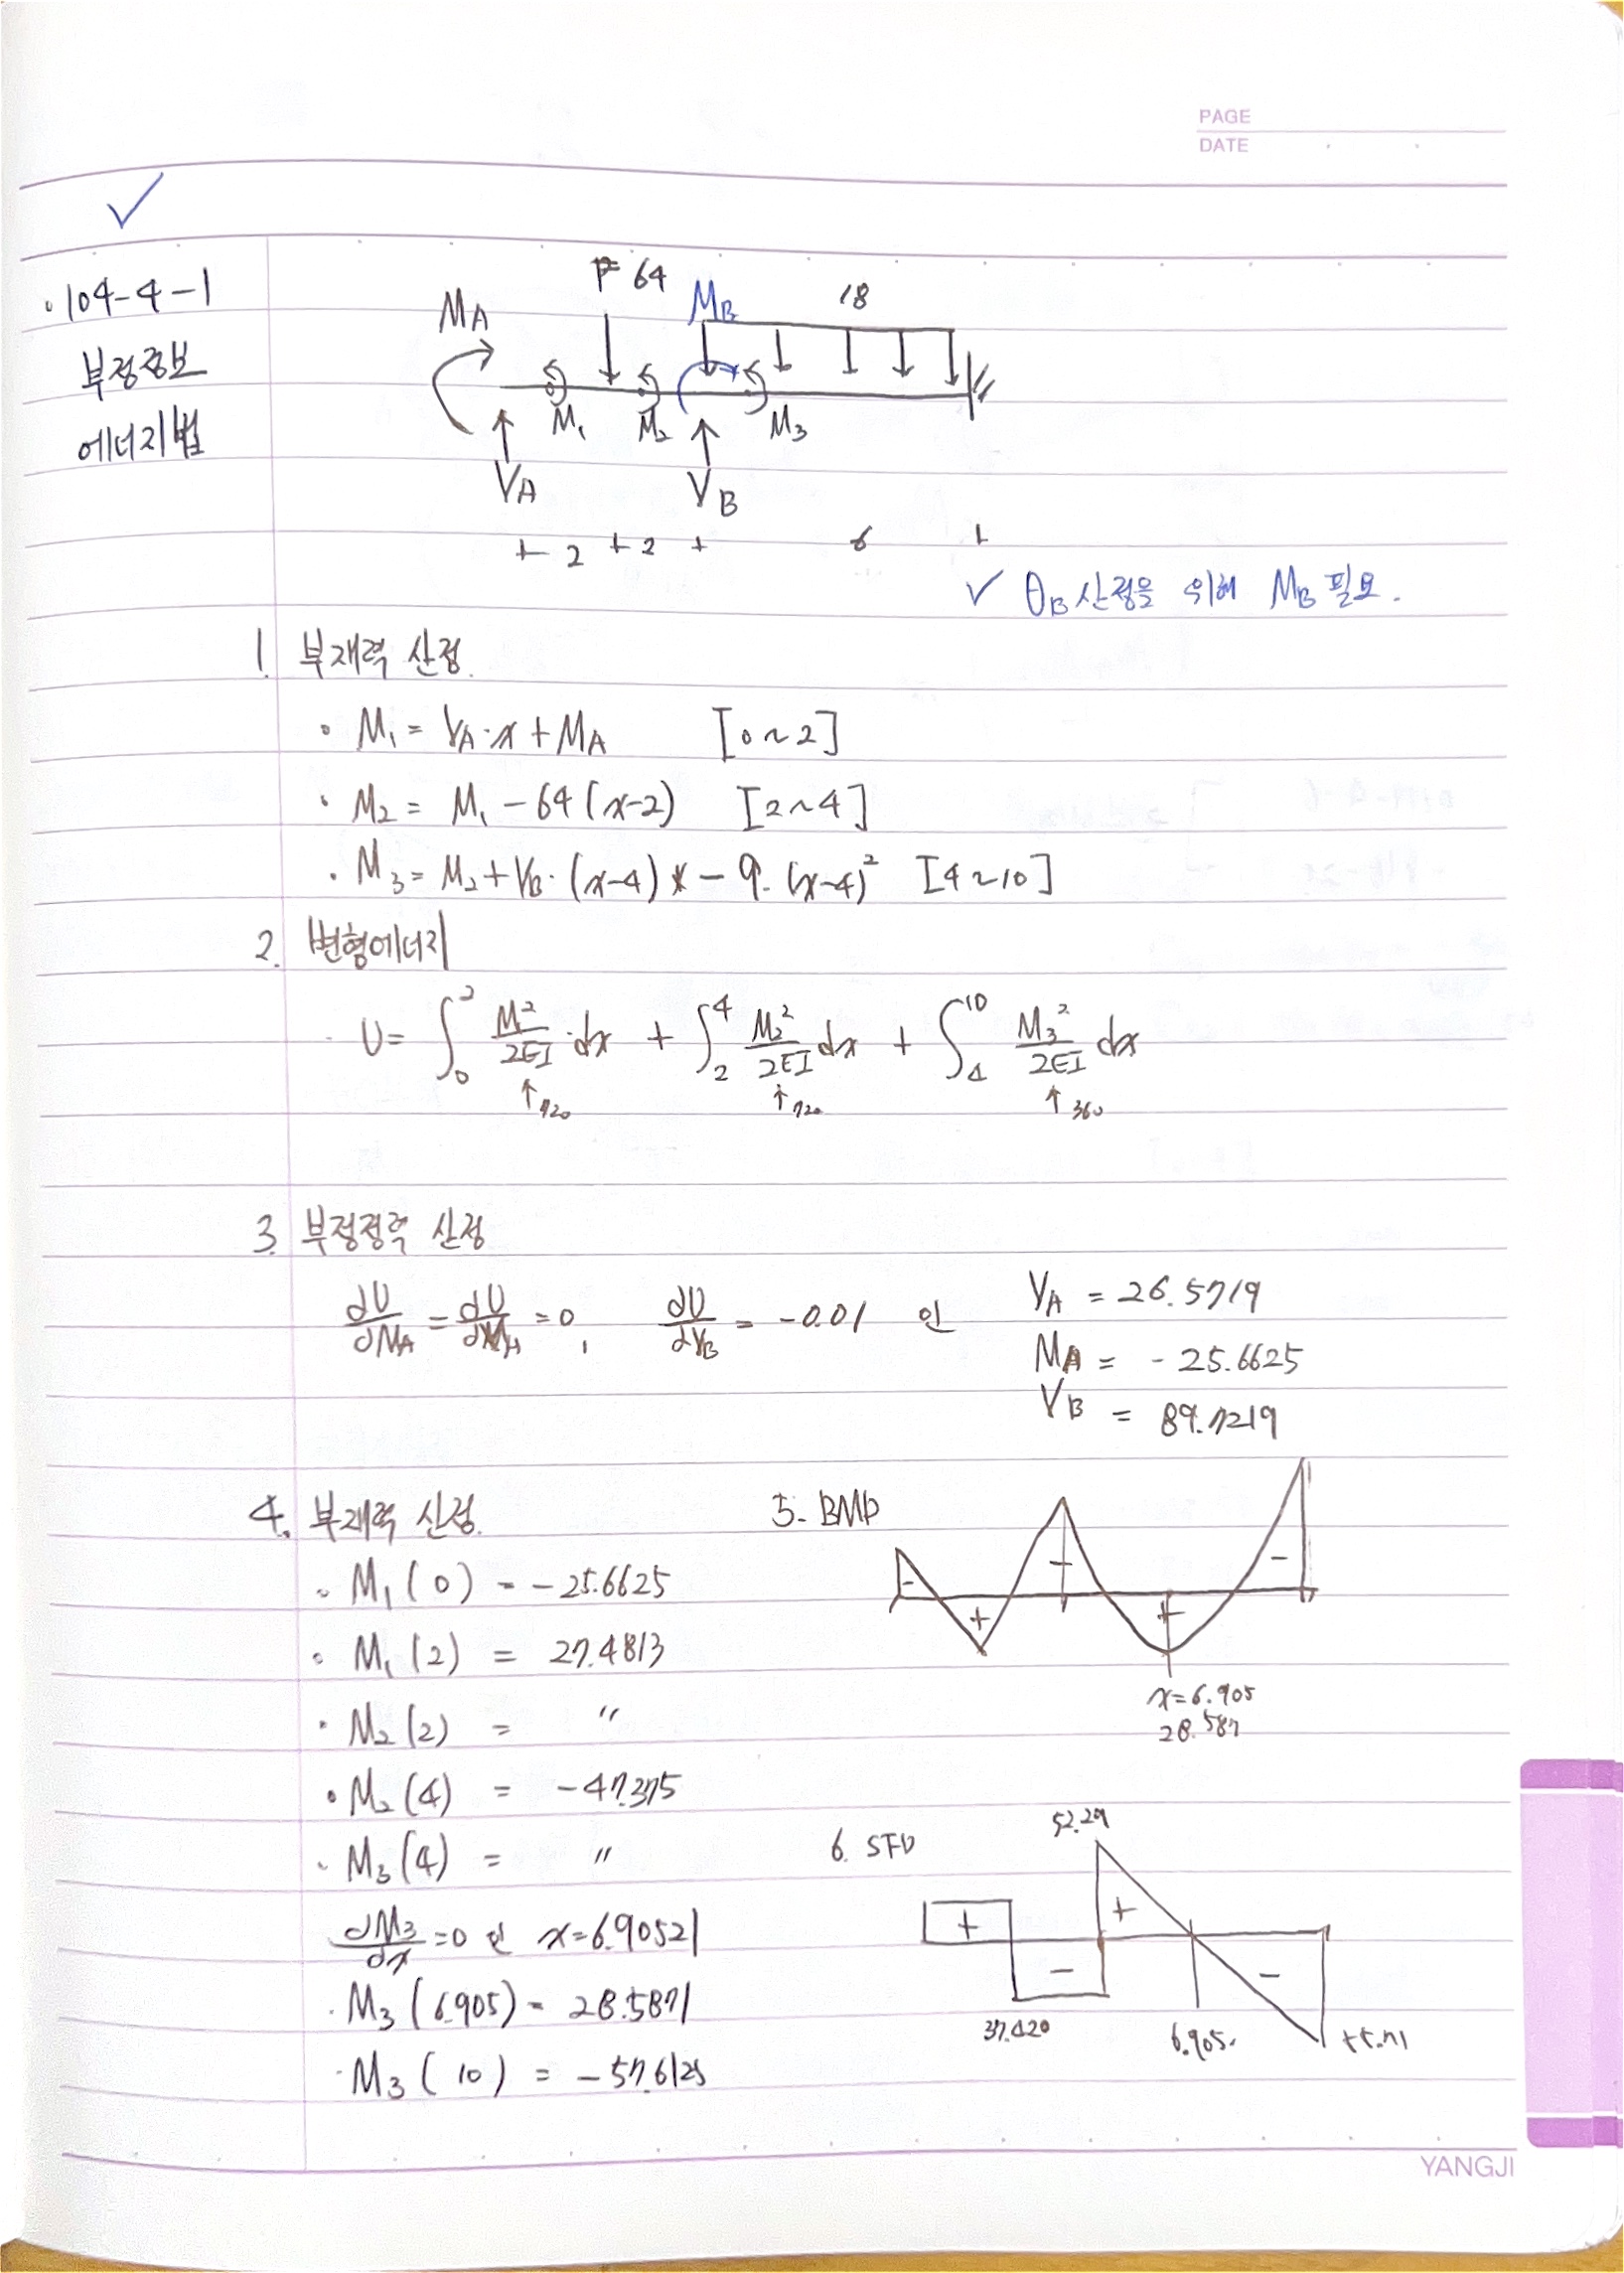 PAGE
DATE
✓
· 104-4-1
부정정보
에너지법
P=64
MA
MB
18
M₁
M₂
M₃
VA
VB
+ 2 + 2 + 6 +
✓ θB 산정을 위해 MB 필요.
1. 부재력 산정.
· M₁ = VA·x + MA [0~2]
· M₂ = M₁ - 64(x-2) [2~4]
· M₃ = M₂ + VB·(x-4) - 9·(x-4)² [4~10]
2. 변형에너지
U = ∫₀² M₁²/2EI·dx + ∫₂⁴ M₂²/2EI dx + ∫₄¹⁰ M₃²/2EI dx
↑720 ↑720 ↑360
3. 부정정력 산정
∂U/∂MA = ∂U/∂VA = 0, ∂U/∂VB = -0.01 인
VA = 26.5719
MA = -25.6625
VB = 89.7219
4. 부재력 산정.
5. BMD
· M₁(0) = -25.6625
· M₁(2) = 27.4813
· M₂(2) = "
· M₂(4) = -47.375
· M₃(4) = "
∂M₃/∂x = 0 인 x=6.90521
· M₃(6.905) = 28.5871
· M₃(10) = -57.6125
- + - + -
x=6.905
28.587
6. SFD
52.29
+ - + -
37.420
6.905.
55.71
YANGJI